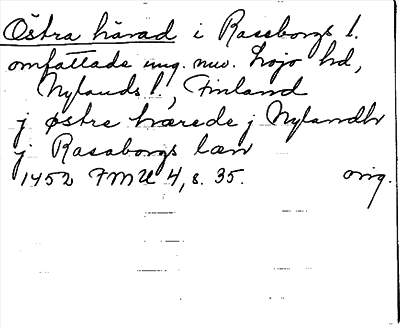 Östra härad i Raseborgs l.
omfattade ung. nuv. Lojo hd,
Nylands l., Finland
j østre hærede j Nylandh
j Rasaborgs læn
1452 FMU 4, s. 35. orig.